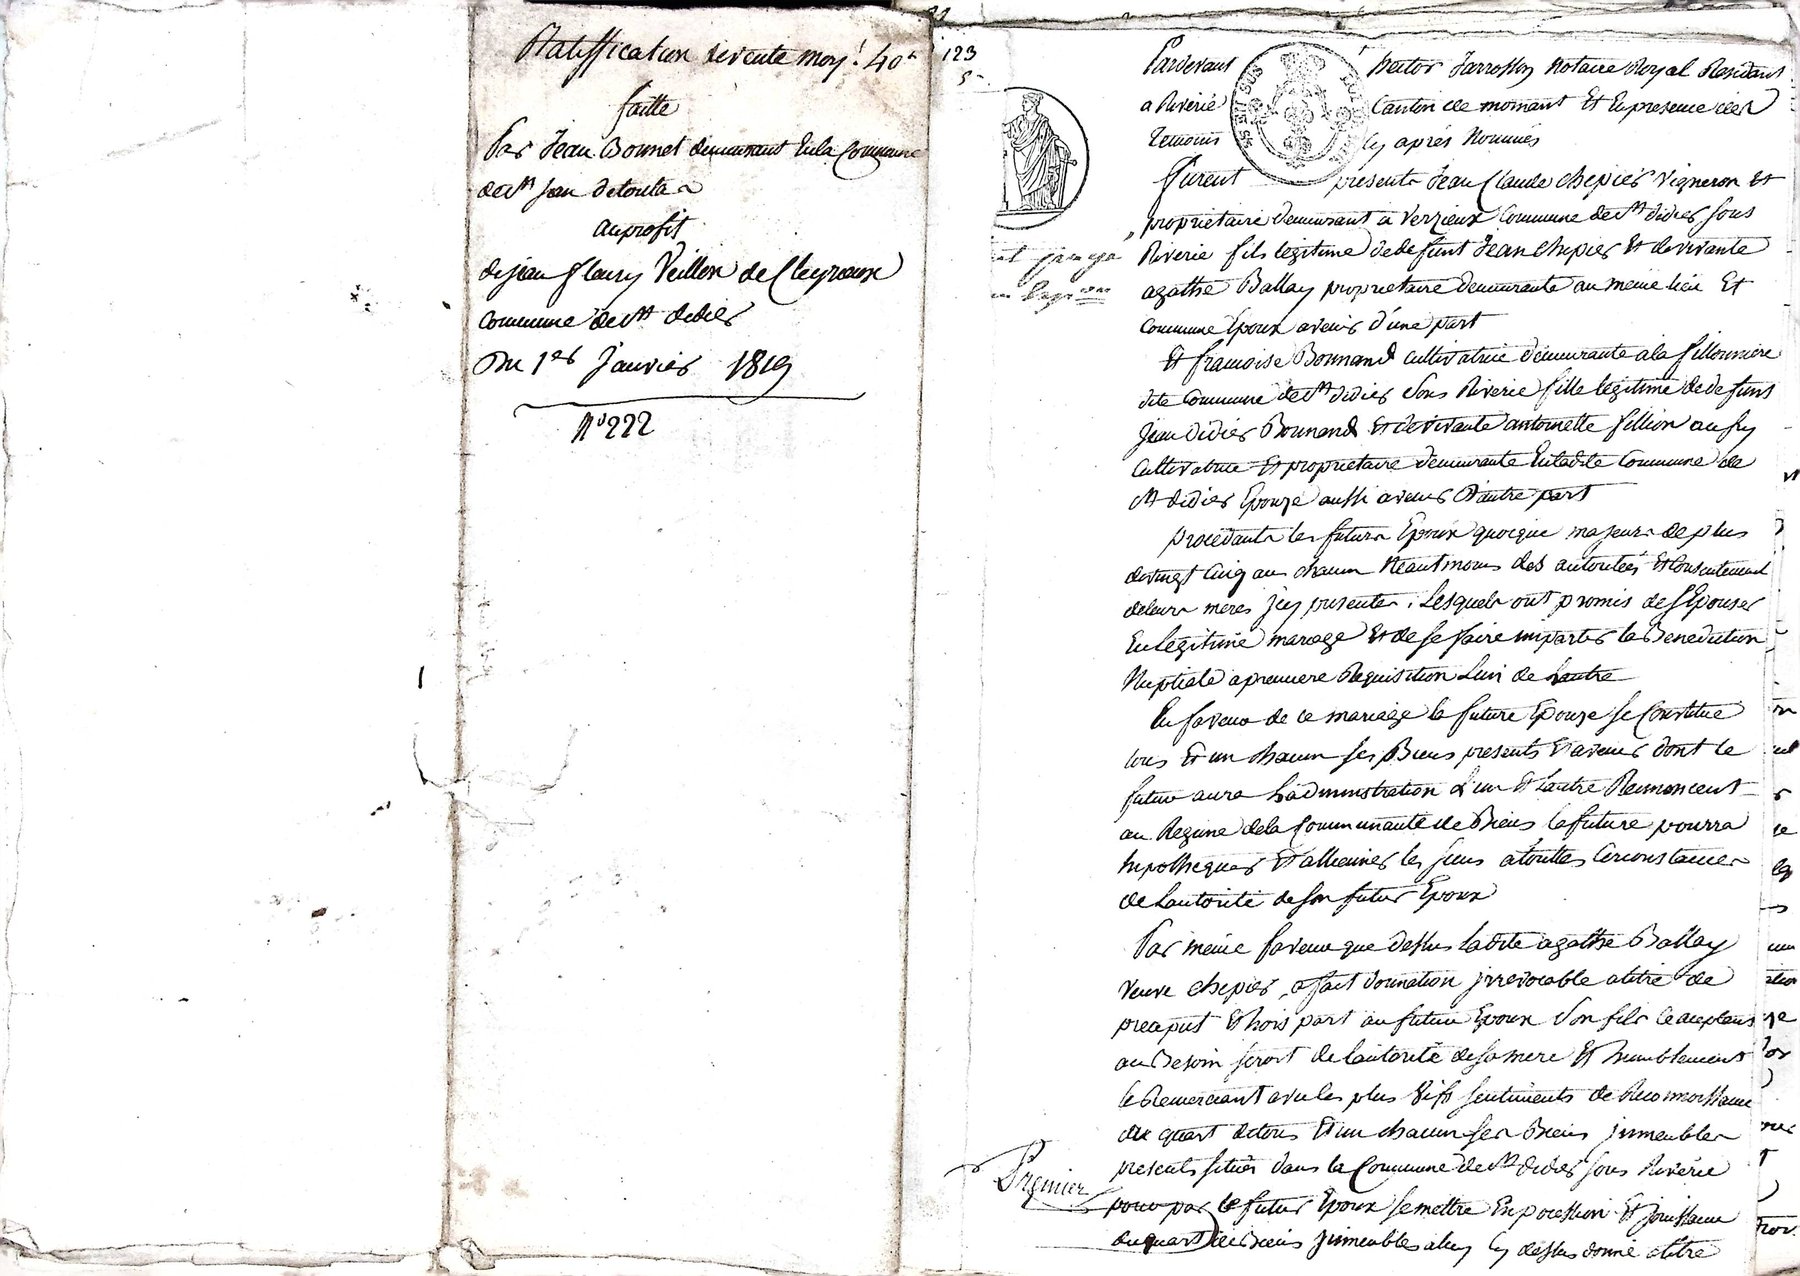 Ratiffication de vente moy.t 40#
faitte
Par Jean Bonnet demeurant En la Commune
de St Jean detoula
au profit
de jean fleury Veillon de Cleyzoux
Commune de St didier
Du 1er Janvier 1819
No 222
123
5
Pardevant hector Jarrossy Notaire Royal Residant
a Riverie Canton de mornant Et En presence des
Temoins Cy aprés Nommés
furent presents Jean Claude chepier Vigneron Et
proprietaire demeurant a Verzieux Commune de St didier sous
Riverie fils legitime de defunt Jean chepier Et de vivante
agathe Ballay proprietaire demeurante au meme lieu Et
Commune Epoux avenir d'une part
Et françoise Bonnand cultivatrice demeurante a la fillonniere
dite Commune de St didier Sous Riverie fille legitime de defunt
Jean didier Bonnand Et de vivante antoinette fillion aussy
Cultivatrice Et proprietaire demeurante En ladite Commune de
St didier Epouze aussi avenir D'autre part
procedants les futurs Epoux quoique majeurs de plus
de vingt Cinq ans chacun Neantmoins des autorités Et Consentement
de leurs meres jcy presentes. Lesquels ont promis de s'Epouser
En legitime mariage Et de se faire impartir la Benediction
Nuptiale a premiere Requisition L'un de Lautre
En faveur de ce mariage la future Epouze se Constitue
tous Et un chacun ses Biens presents Et avenir dont le
futur aura Ladministration L'un Et Lautre Renoncent
au Regime de la Communauté de Biens la future pourra
hipothequer Et alliener les siens a touttes Circonstances
de Lautorité de son futur Epoux
Par meme faveur que dessus ladite agathe Ballay
veuve chepier, a fait donnation jrrevocable a titre de
preciput Et hors part au futur Epoux Son fils Ce acceptant
au Besoin seroit de L'autorité de sa mere Et humblement
la Remerciant avec les plus Vifs sentiments de Reconnoissance
du quart de tous Et un chacun ses Biens jmmeubles
presents situés dans la Commune de St didier sous Riverie
pour par le futur Epoux se mettre En possession Et Jouissance
du quart de Biens jmmeubles a luy Cy dessus donné a titre
Premier